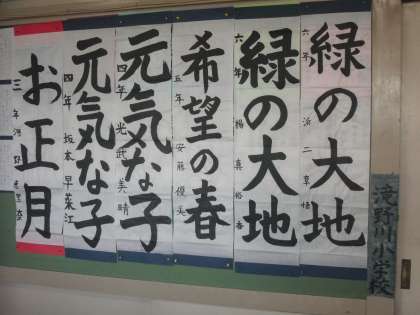 緑の大地
六年
緑の大地
六年 楊 真裕香
希望の春
五年 安藤優美
元気な子
四年 光武美晴
元気な子
四年 坂本早葉江
お正月
三年
滝野川小学校